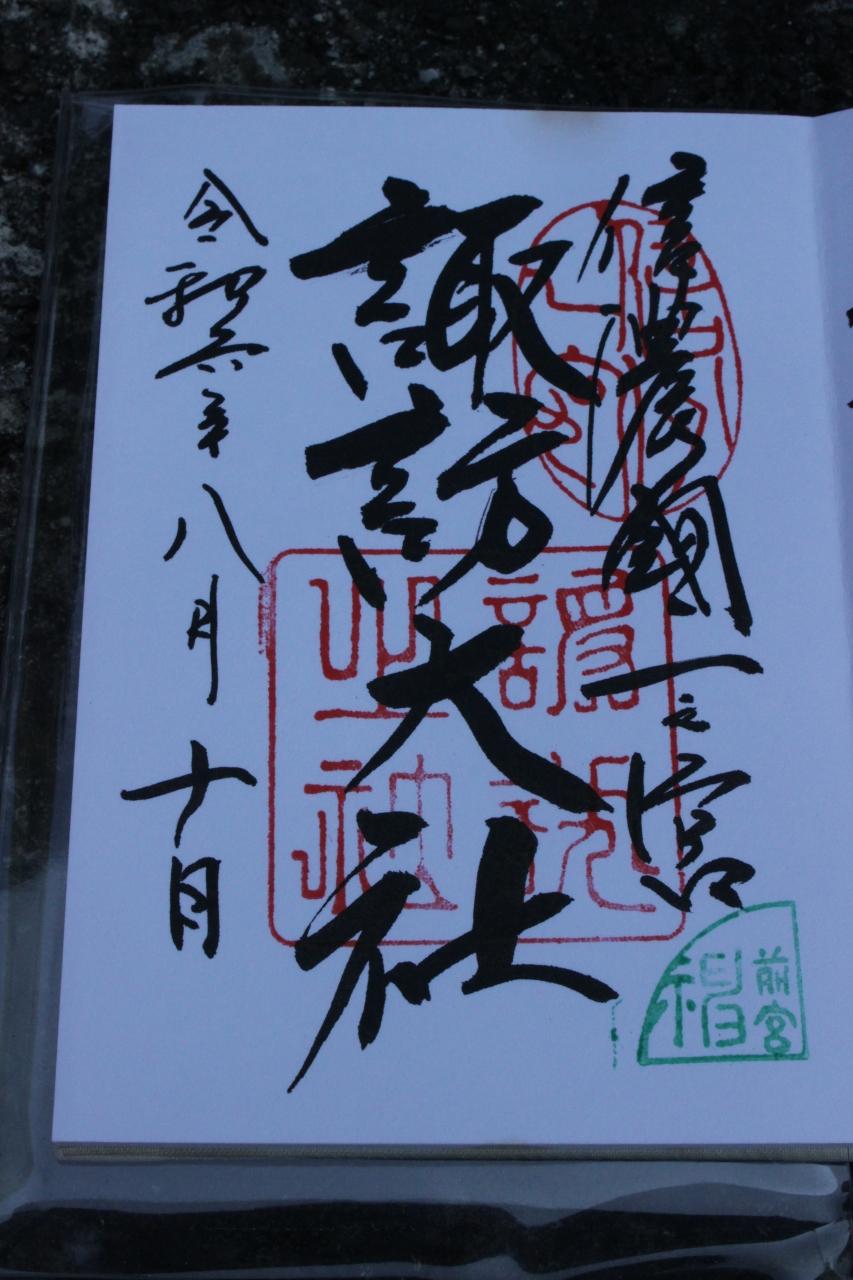 信濃國一之宮
諏訪大社
令和六年八月十日
前宮